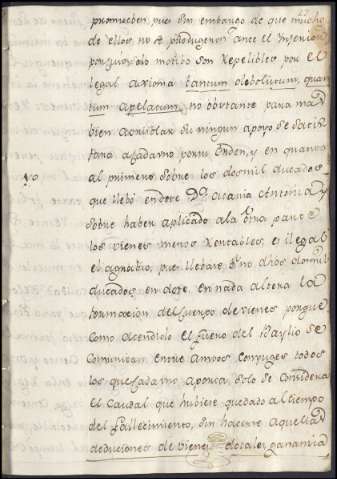 promoedores, pues sin embargo de que mucho
de ellos no se produgeron ante el Inferior
por su oridio motibo son repelibles por el
legal axioma tantum debolutum, quan
tum apelatum, no obstante para mas
bien acrisolar su ningun apoyo se satis
fara a cada uno por su orden, y en quanto
1º al primero sobre los dos mil ducados
que llebó en dote Dª Maria Antonia y
sobre haben aplicado a la otra parte
los vienes menos rentables, es ilegal
el agrabio, pues llebase ó no dhos dos mil
ducados en dote, en nada altera la
formacion del cuerpo de vienes porque
como acendolo el fuero del Baylio se
comunican entre ambos conyuges todos
los que cada uno aporta, solo se considera
el caudal que hubiere quedado al tiempo
del fallecimiento, sin hacerse aquellas
deduciones de vienes dotales ganancia